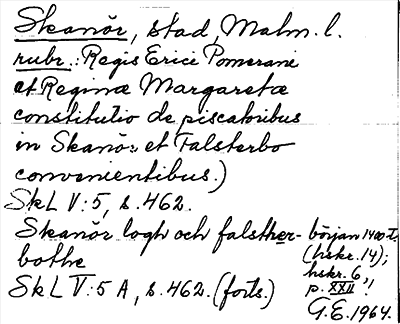 Skanör, stad, Malm. l.
rubr.: Regis Erici Pomerani
et Reginæ Margaretæ
constitutio de piscatoribus
in Skanör et Falsterbo
convenientibus.)
SkL V:5, s. 462.
Skanör logh och falsther-
bothe
början 1400-t.
(hskr. 14);
hskr. 6,
p. XXII!
SkL V:5 A, s. 462. (forts.)
G.E. 1964.